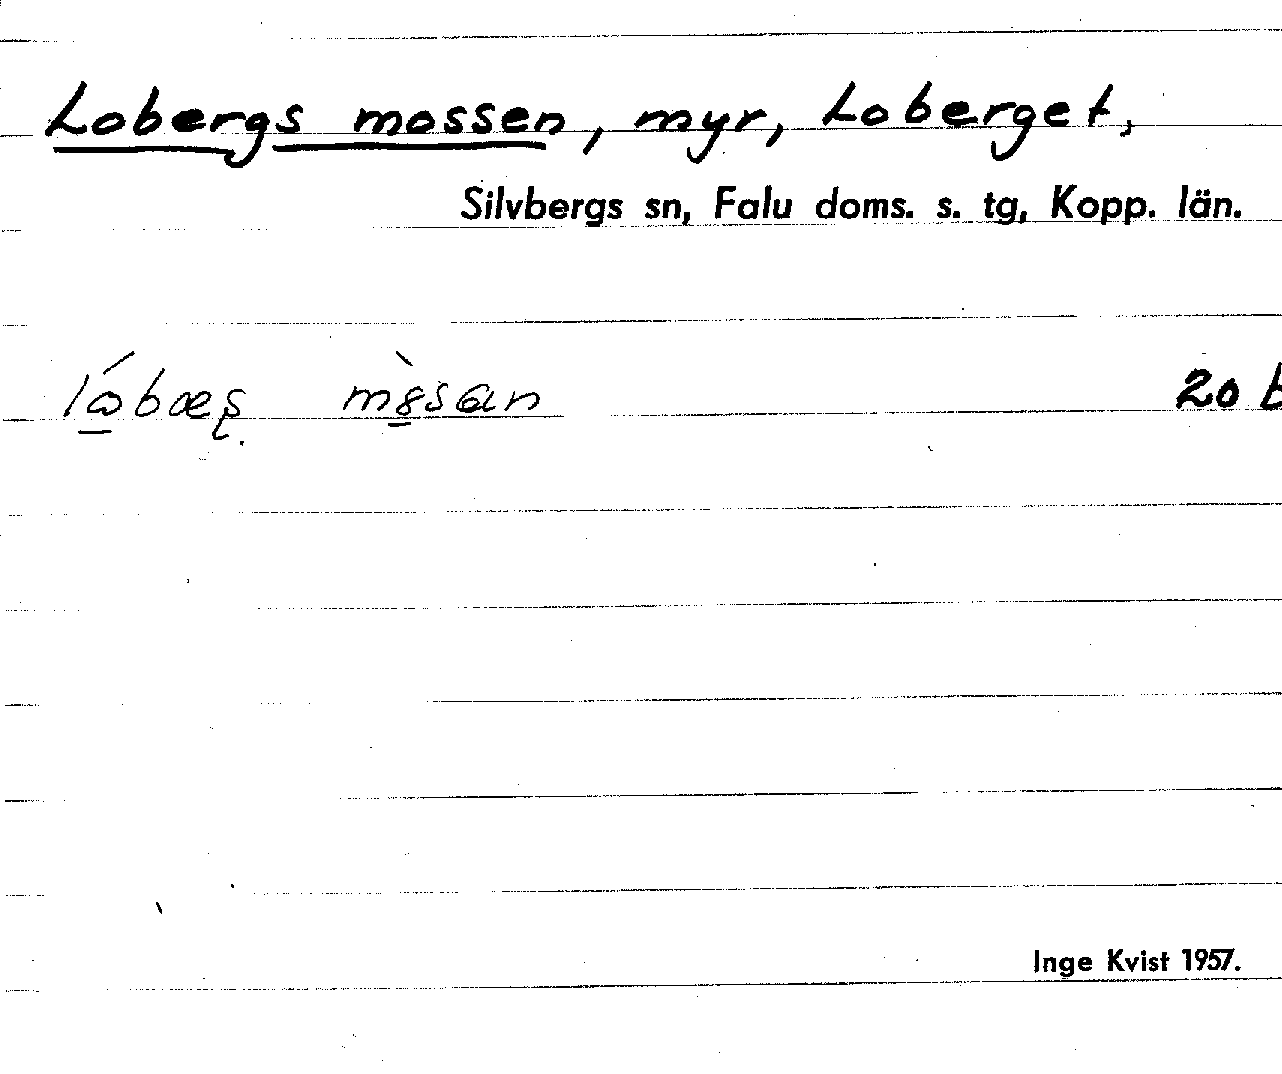 Lobergs mossen, myr, Loberget,
Silvbergs sn, Falu doms. s. tg, Kopp. län.
20 b
Inge Kvist 1957.